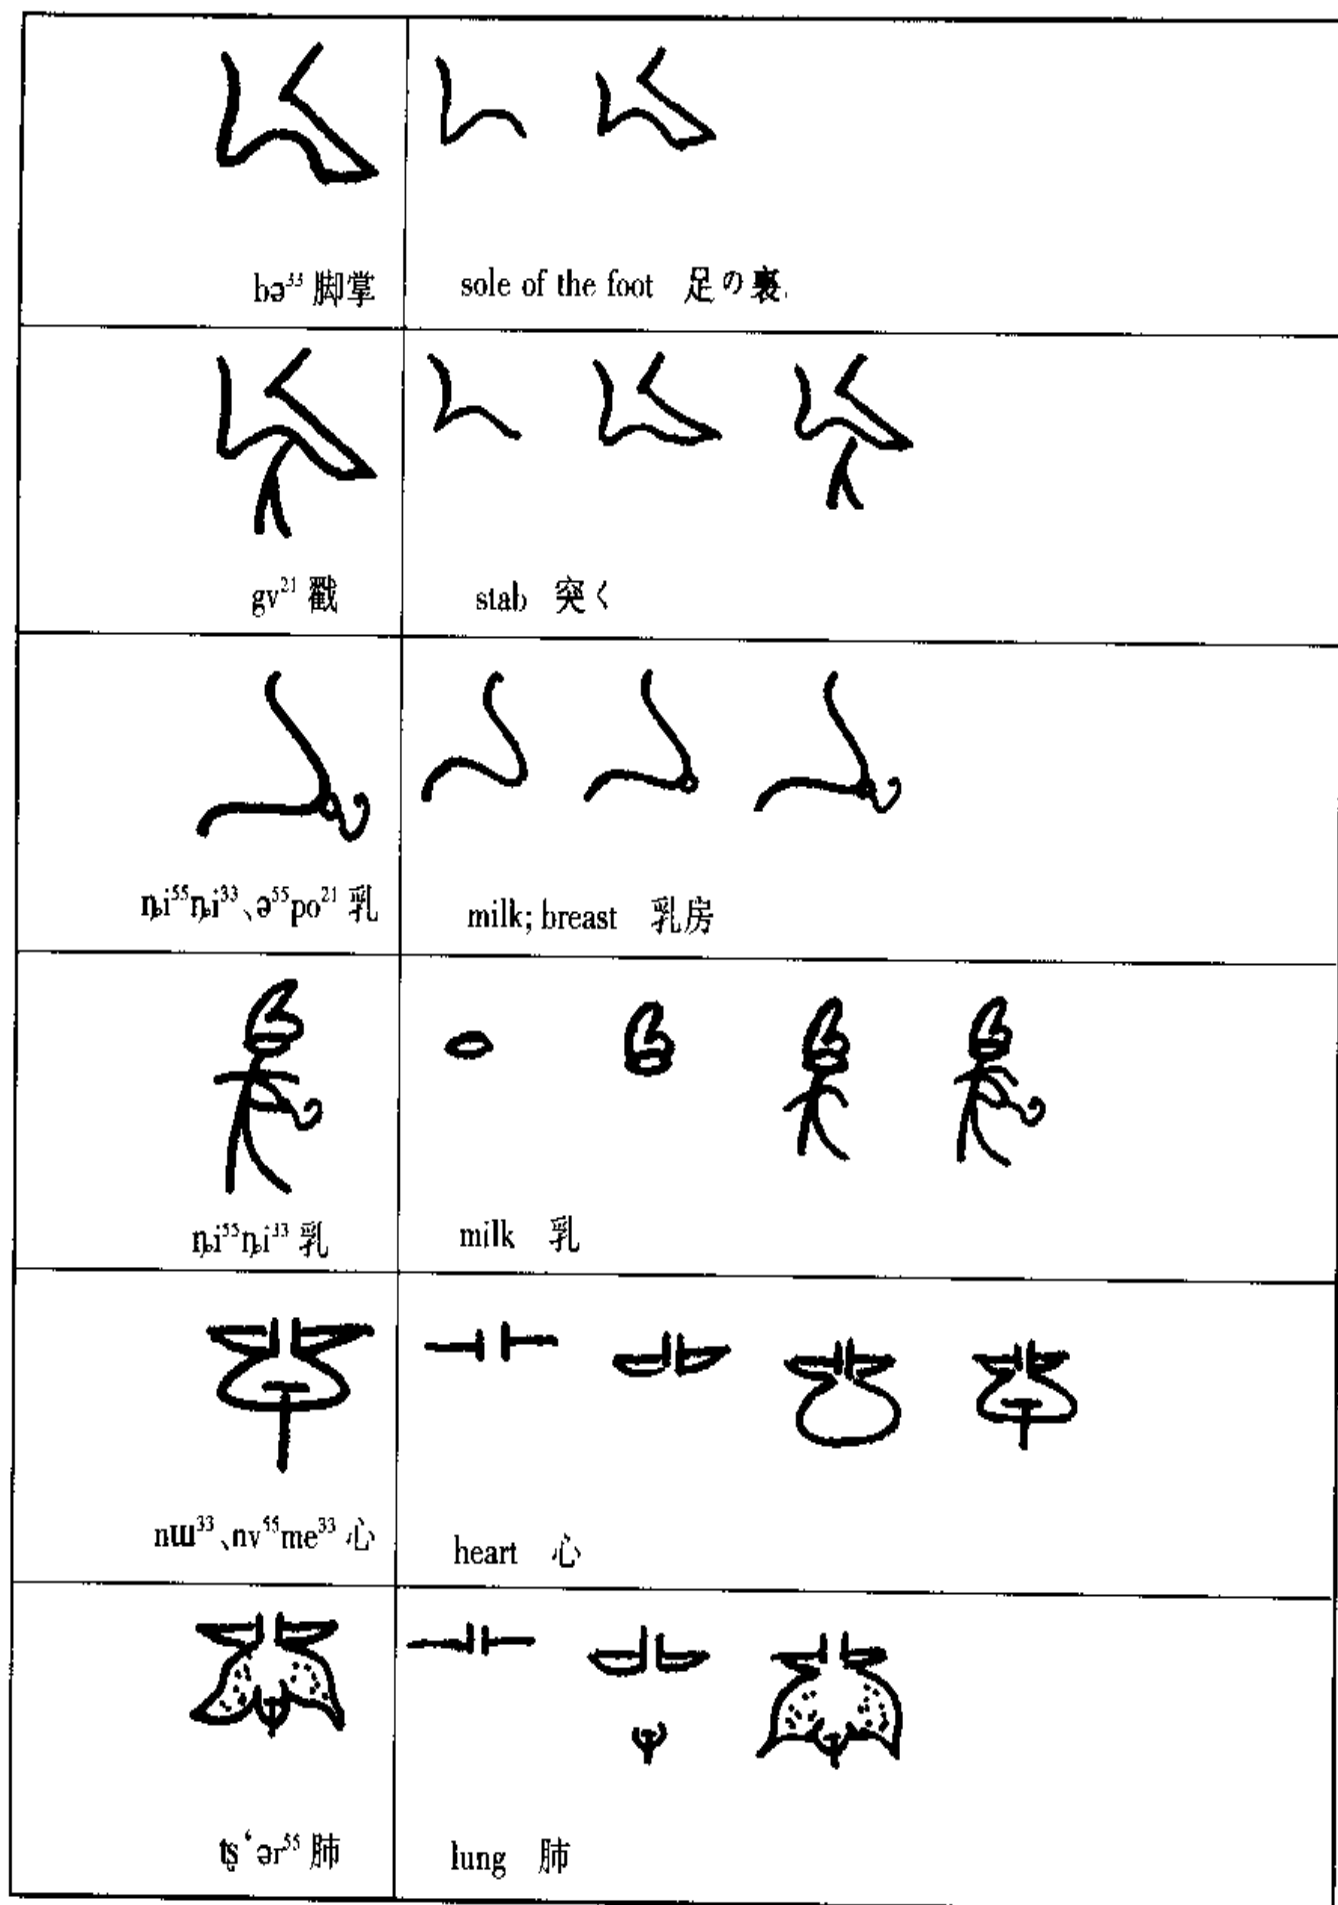 bə³³ 脚掌 sole of the foot 足の裏
gv²¹ 戳 stab 突く
ȵi⁵⁵ȵi³³、ə⁵⁵po²¹ 乳 milk; breast 乳房
ȵi⁵⁵ȵi³³ 乳 milk 乳
nɯ³³、nv⁵⁵me³³ 心 heart 心
tʂ‘ər⁵⁵ 肺 lung 肺